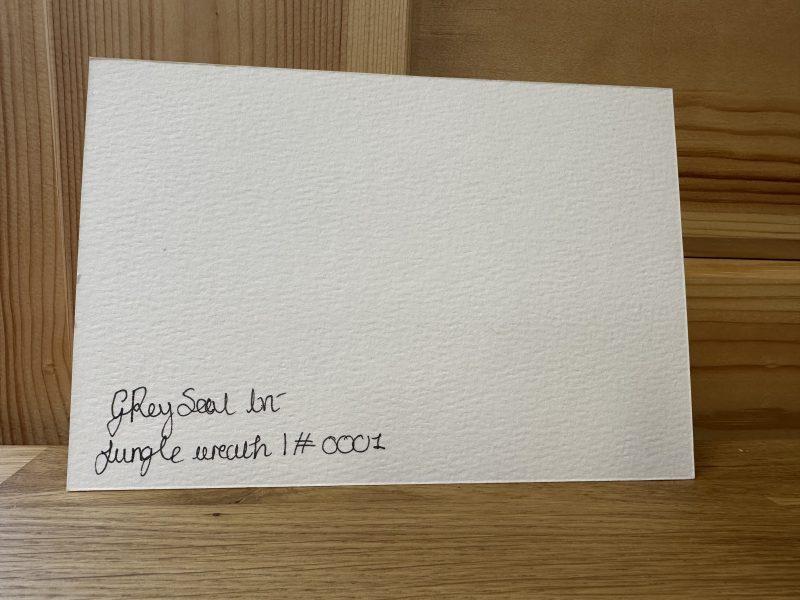 GRey Seal in-
Jungle wreath 1 # 0001